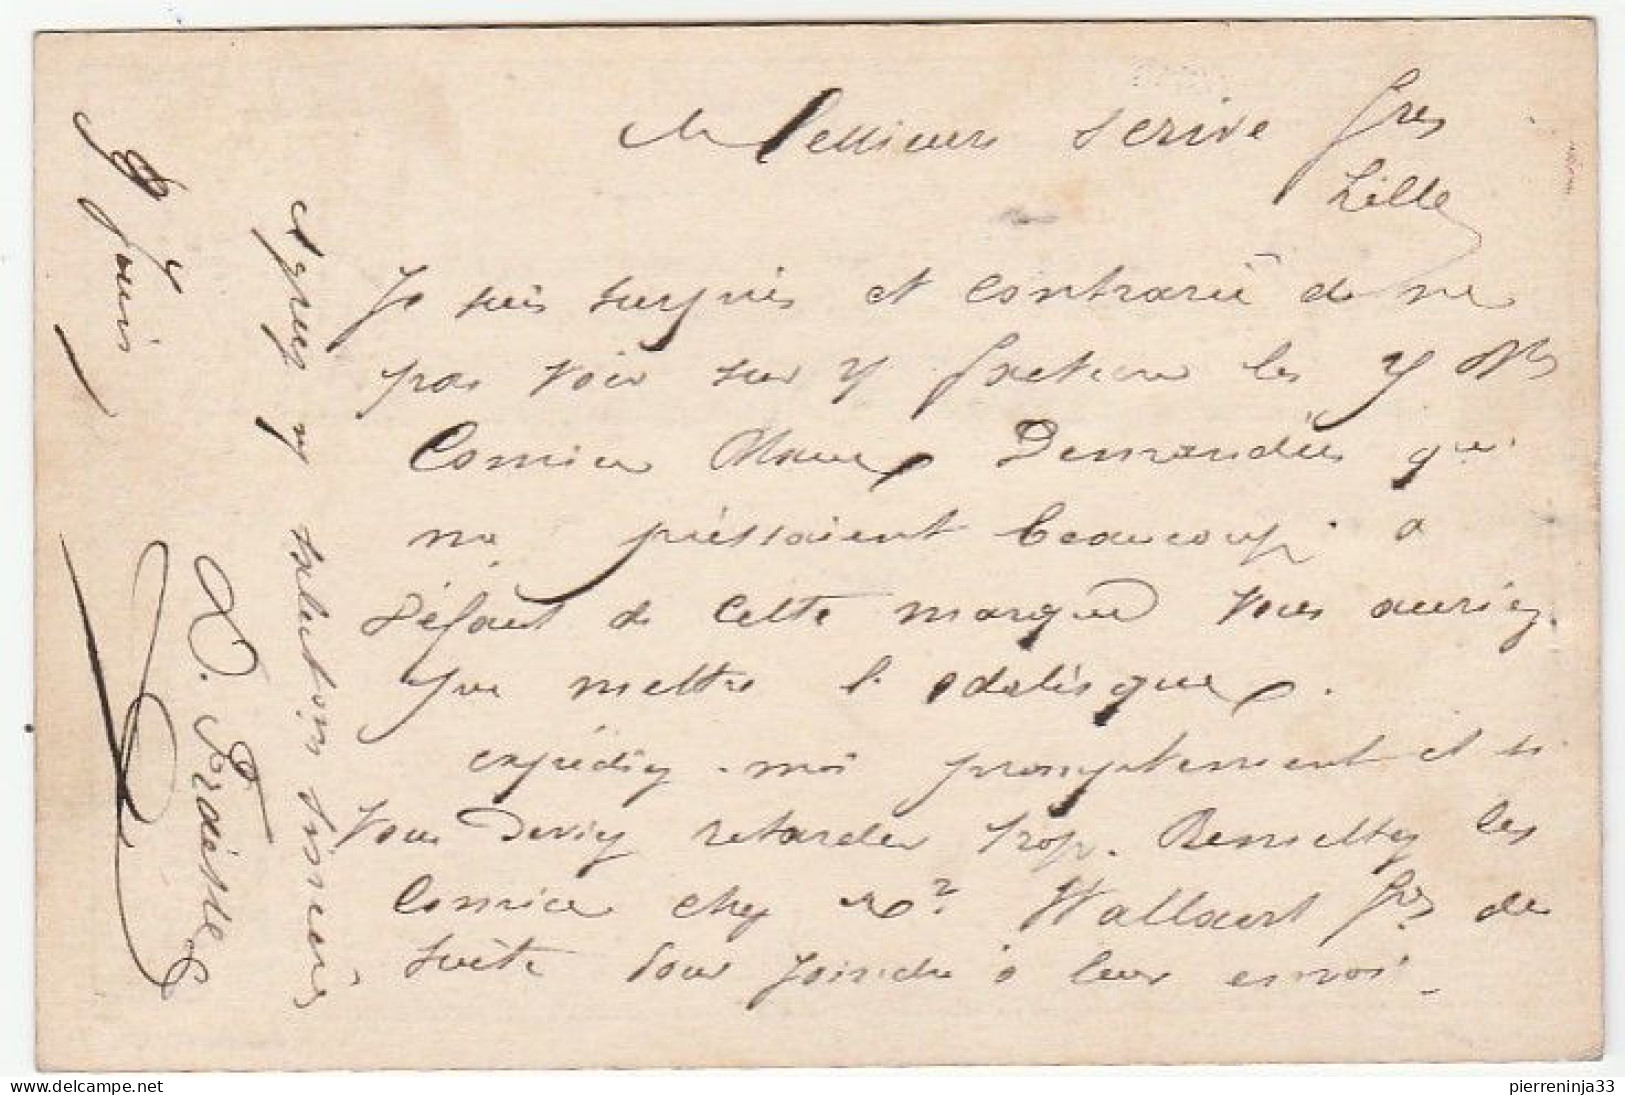 Messieurs Scrive fres
Lille
Je suis surpris et contrarié de ne
pas voir sur v/ facture les
Demandées qui
me pressaient beaucoup. a
défaut de cette marque vous auriez
pu mettre l'odalisque.
expédiez-moi promptement et si
vous deviez retarder trop. Remettez les
chez Mr Wallaert frs de
suite pour joindre à leur envoi.
Agreez m/ salutations sincères
9 Juin
pierreninja33